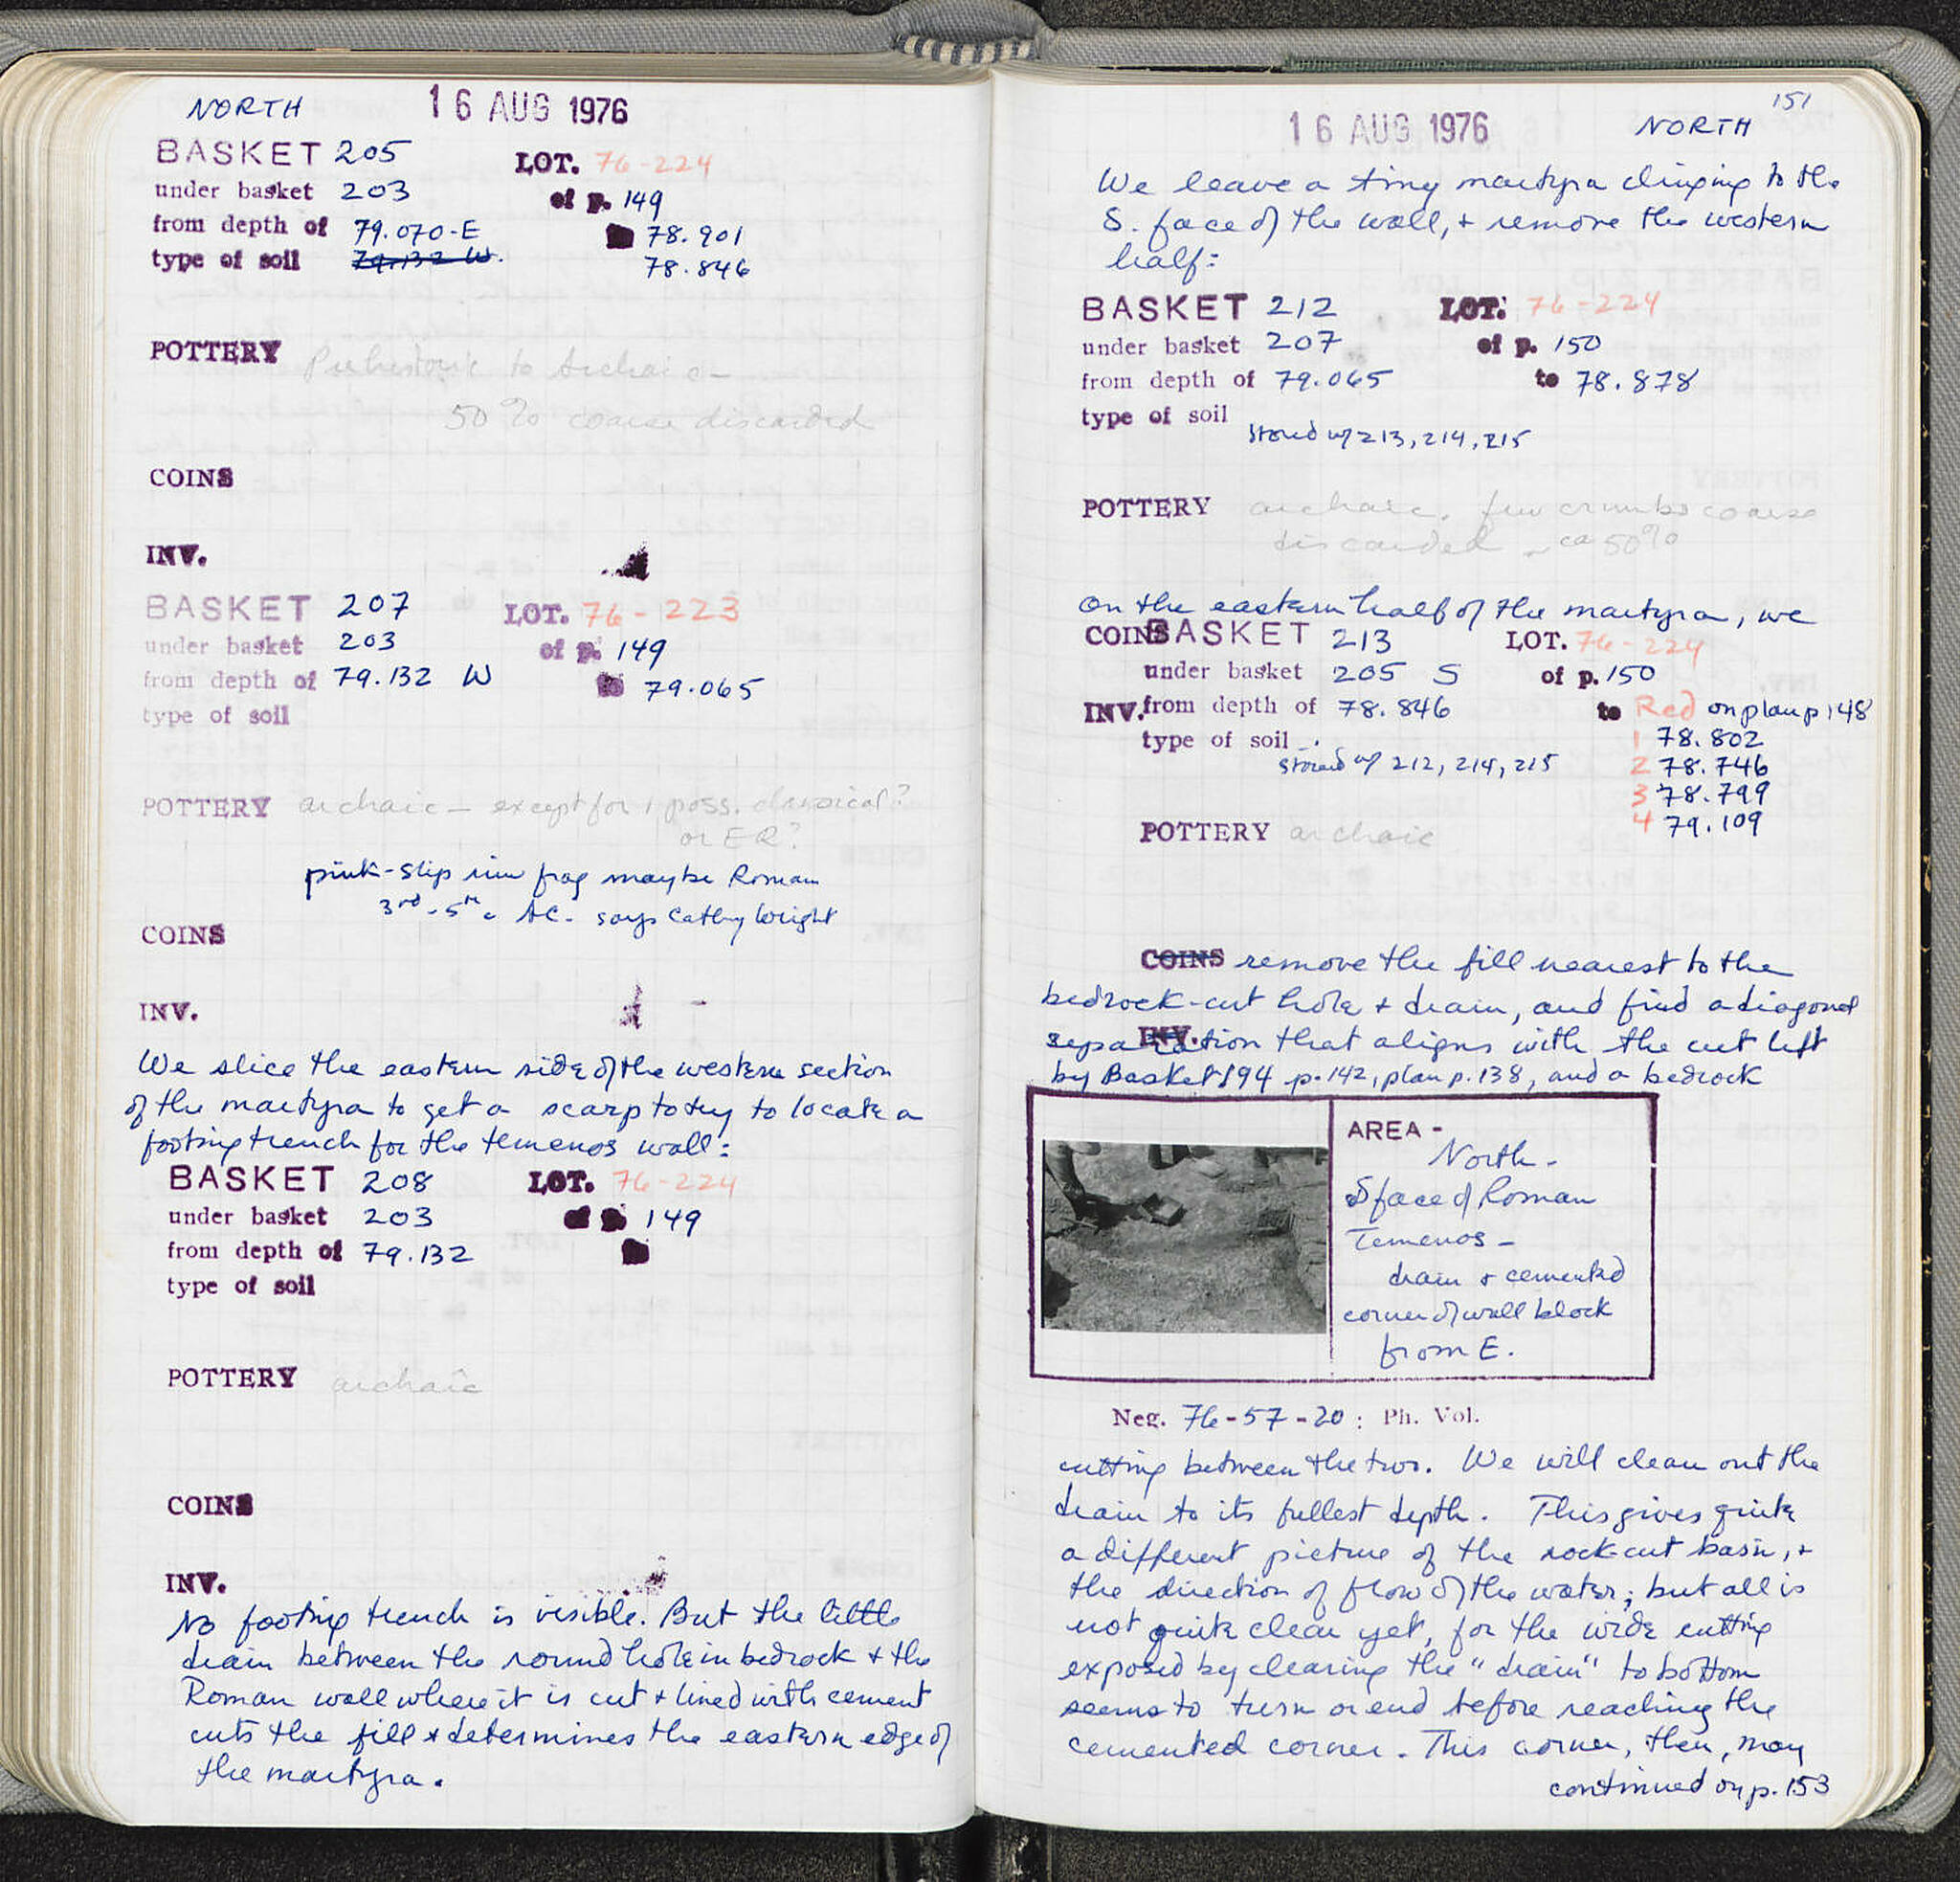 NORTH 16 AUG 1976
BASKET 205 LOT. 76-224
under basket 203 of p. 149
from depth of 79.070-E 78.901
type of soil 79.132 W. 78.846
POTTERY Prehistoric to Archaic-
50% coarse discarded
COINS
INV.
BASKET 207 LOT. 76-223
under basket 203 of p. 149
from depth of 79.132 W 79.065
type of soil
POTTERY archaic - except for 1 poss. classical?
or ER?
pink-slip rim frag maybe Roman
3rd-5th c AC. says Cathy Wright
COINS
INV.
We slice the eastern side of the western section
of the martyra to get a scarp to try to locate a
footing trench for the temenos wall:
BASKET 208 LOT. 76-224
under basket 203 of p. 149
from depth of 79.132
type of soil
POTTERY archaic
COINS
INV.
No footing trench is visible. But the little
drain between the round hole in bedrock + the
Roman wall where it is cut + lined with cement
cuts the fill + determines the eastern edge of
the martyra.
151
16 AUG 1976 NORTH
We leave a tiny martyra clinging to the
S. face of the wall, + remove the western
half:
BASKET 212 LOT: 76-224
under basket 207 of p. 150
from depth of 79.065 to 78.878
type of soil
stored w/ 213, 214, 215
POTTERY archaic. few crumbs coarse
discarded - ca 50%
On the eastern half of the martyra, we
COINS BASKET 213 LOT. 76-224
under basket 205 S of p. 150
INV. from depth of 78.846 to Red on plan p 148
type of soil 1 78.802
stored w/ 212, 214, 215 2 78.746
3 78.799
4 79.109
POTTERY archaic
COINS remove the fill nearest to the
bedrock-cut hole + drain, and find a diagonal
INV.
separation that aligns with the cut left
by Basket 194 p. 142, plan p. 138, and a bedrock
AREA -
North -
S face of Roman
Temenos -
drain + cemented
corner of wall block
from E.
Neg. 76-57-20: Ph. Vol.
cutting between the two. We will clean out the
drain to its fullest depth. This gives quite
a different picture of the rock-cut basin, +
the direction of flow of the water; but all is
not quite clear yet, for the wide cutting
exposed by clearing the "drain" to bottom
seems to turn or end before reaching the
cemented corner. This corner, then, may
continued on p. 153